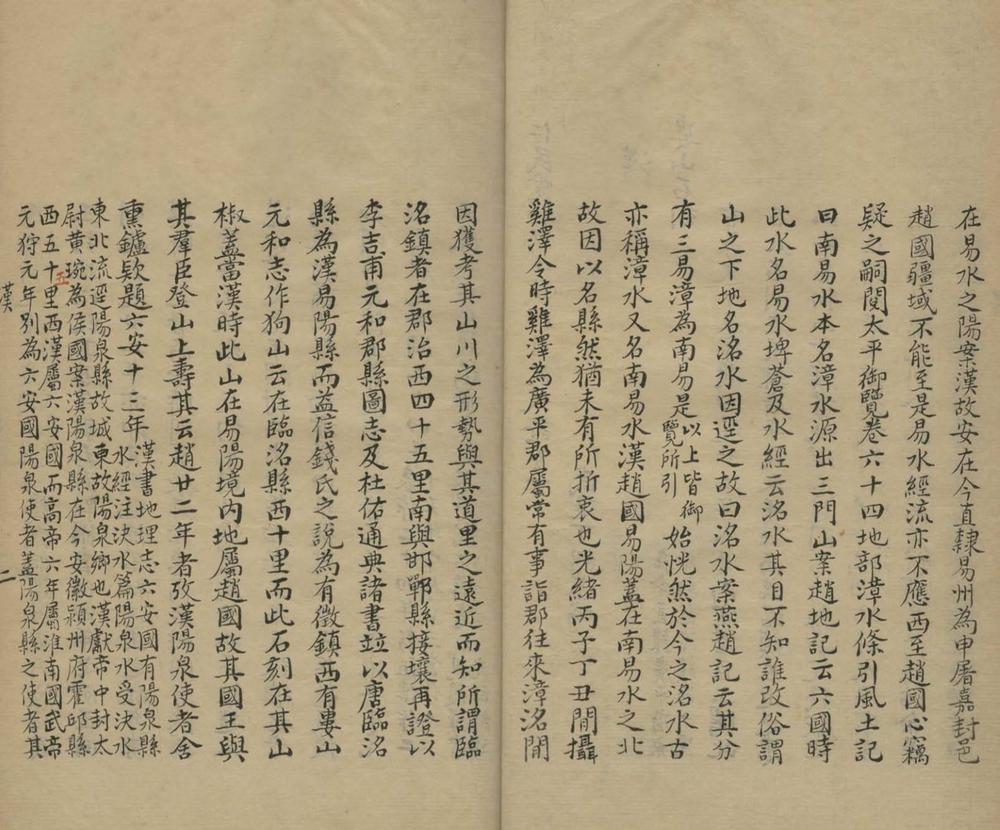 在易水之陽案漢故安在今直隸易州為申屠嘉封邑
趙國疆域不能至是易水經流亦不應西至趙國心竊
疑之嗣閱太平御覽卷六十四地部漳水條引風土記
曰南易水本名漳水源出三門山案趙地記云六國時
此水名易水埤蒼及水經云洺水其目不知誰改俗謂
山之下地名洺水因逕之故曰洺水案燕趙記云其分
有三易漳為南易是以上皆御覽所引始恍然於今之洺水古
亦稱漳水又名南易水漢趙國易陽蓋在南易水之北
故因以名縣然猶未有所折衷也光緒丙子丁丑閒攝
雞澤令時雞澤為廣平郡屬常有事詣郡往來漳洺閒
因獲考其山川之形勢與其道里之遠近而知所謂臨
洺鎮者在郡治西四十五里南與邯鄲縣接壤再證以
李吉甫元和郡縣圖志及杜佑通典諸書竝以唐臨洺
縣為漢易陽縣而益信錢氏之說為有徵鎮西有婁山
元和志作狗山云在臨洺縣西十里而此石刻在其山
椒蓋當漢時此山在易陽境內地屬趙國故其國王與
其羣臣登山上壽其云趙廿二年者攷漢陽泉使者舍
熏鑪欵題六安十三年漢書地理志六安國有陽泉縣
水經注決水篇陽泉水受決水
東北流逕陽泉縣故城東故陽泉鄉也漢獻帝中封太
尉黃琬為侯國案漢陽泉縣在今安徽潁州府霍邱縣
西五十五里西漢屬六安國而高帝六年屬淮南國武帝
元狩元年別為六安國陽泉使者蓋陽泉縣之使者其
漢
二